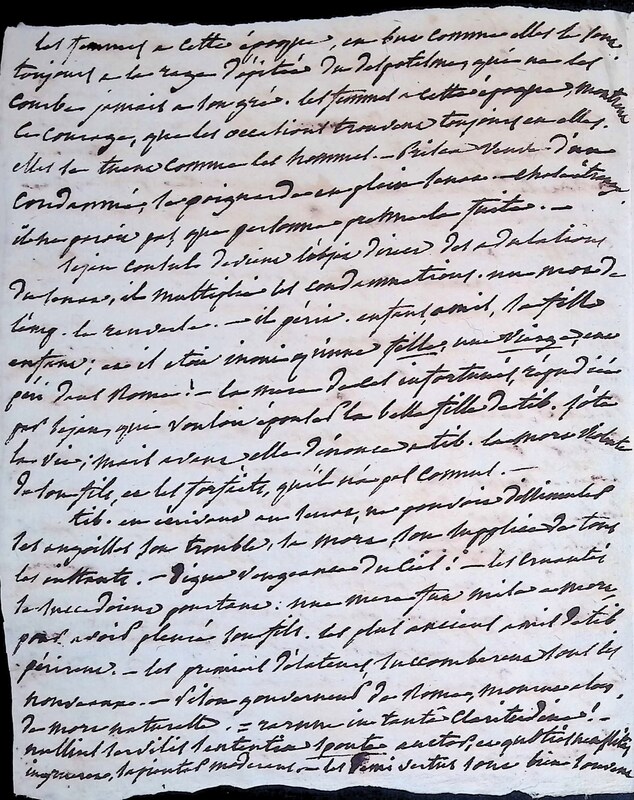 les femmes a cette époque, en bute comme elles le sont
toujours a la rage dépitée du despotisme, qui ne les
courbe jamais a son gré. les femmes a cette époque, montrent
le courage, que les occasions trouvent toujours en elles.
elles se tuent comme les hommes. — veuve d'un
condamné, se poignarde en plein senat. — chose étrange
il ne paroit pas que personne prenne la fuite. —
Sejan consul devient l'objet divers des adulations
du senat, il multiplie les condamnations. un mot de
l'emp. le renverse. — il périt. enfans, amis, sa fille
enfant; et il étoit inoui qu'une fille, une vierge, eut
péri dans Rome! — la mere de ces infortunés, répudiée
par Sejan, qui vouloit épouser la belle fille de tib. s'ôte
la vie; mais avant elle dénonce a tib. la mort violente
de son fils, et les forfaits, qu'il n'a pas connus. —
tib. en écrivant au senat, ne pouvoit dissimuler
les angoisses son trouble, sa mort, son supplice de tous
les instants. — Digne vengeance du Ciel! — les cruautés
se succedoient pourtant: une mere fut mise a mort
pour avoir pleuré son fils. les plus anciens amis de tib
périrent. — les premiers délateurs, succomberent sous les
nouveaux. — Pison gouverneur de Rome, mourut alors
de mort naturelle. = rarum in tantâ claritudine! —
nullius servilis sententiæ sponte auctor, et quoties necessitas
ingrueret, sapienter moderans — les demi vertus sont bien souvent